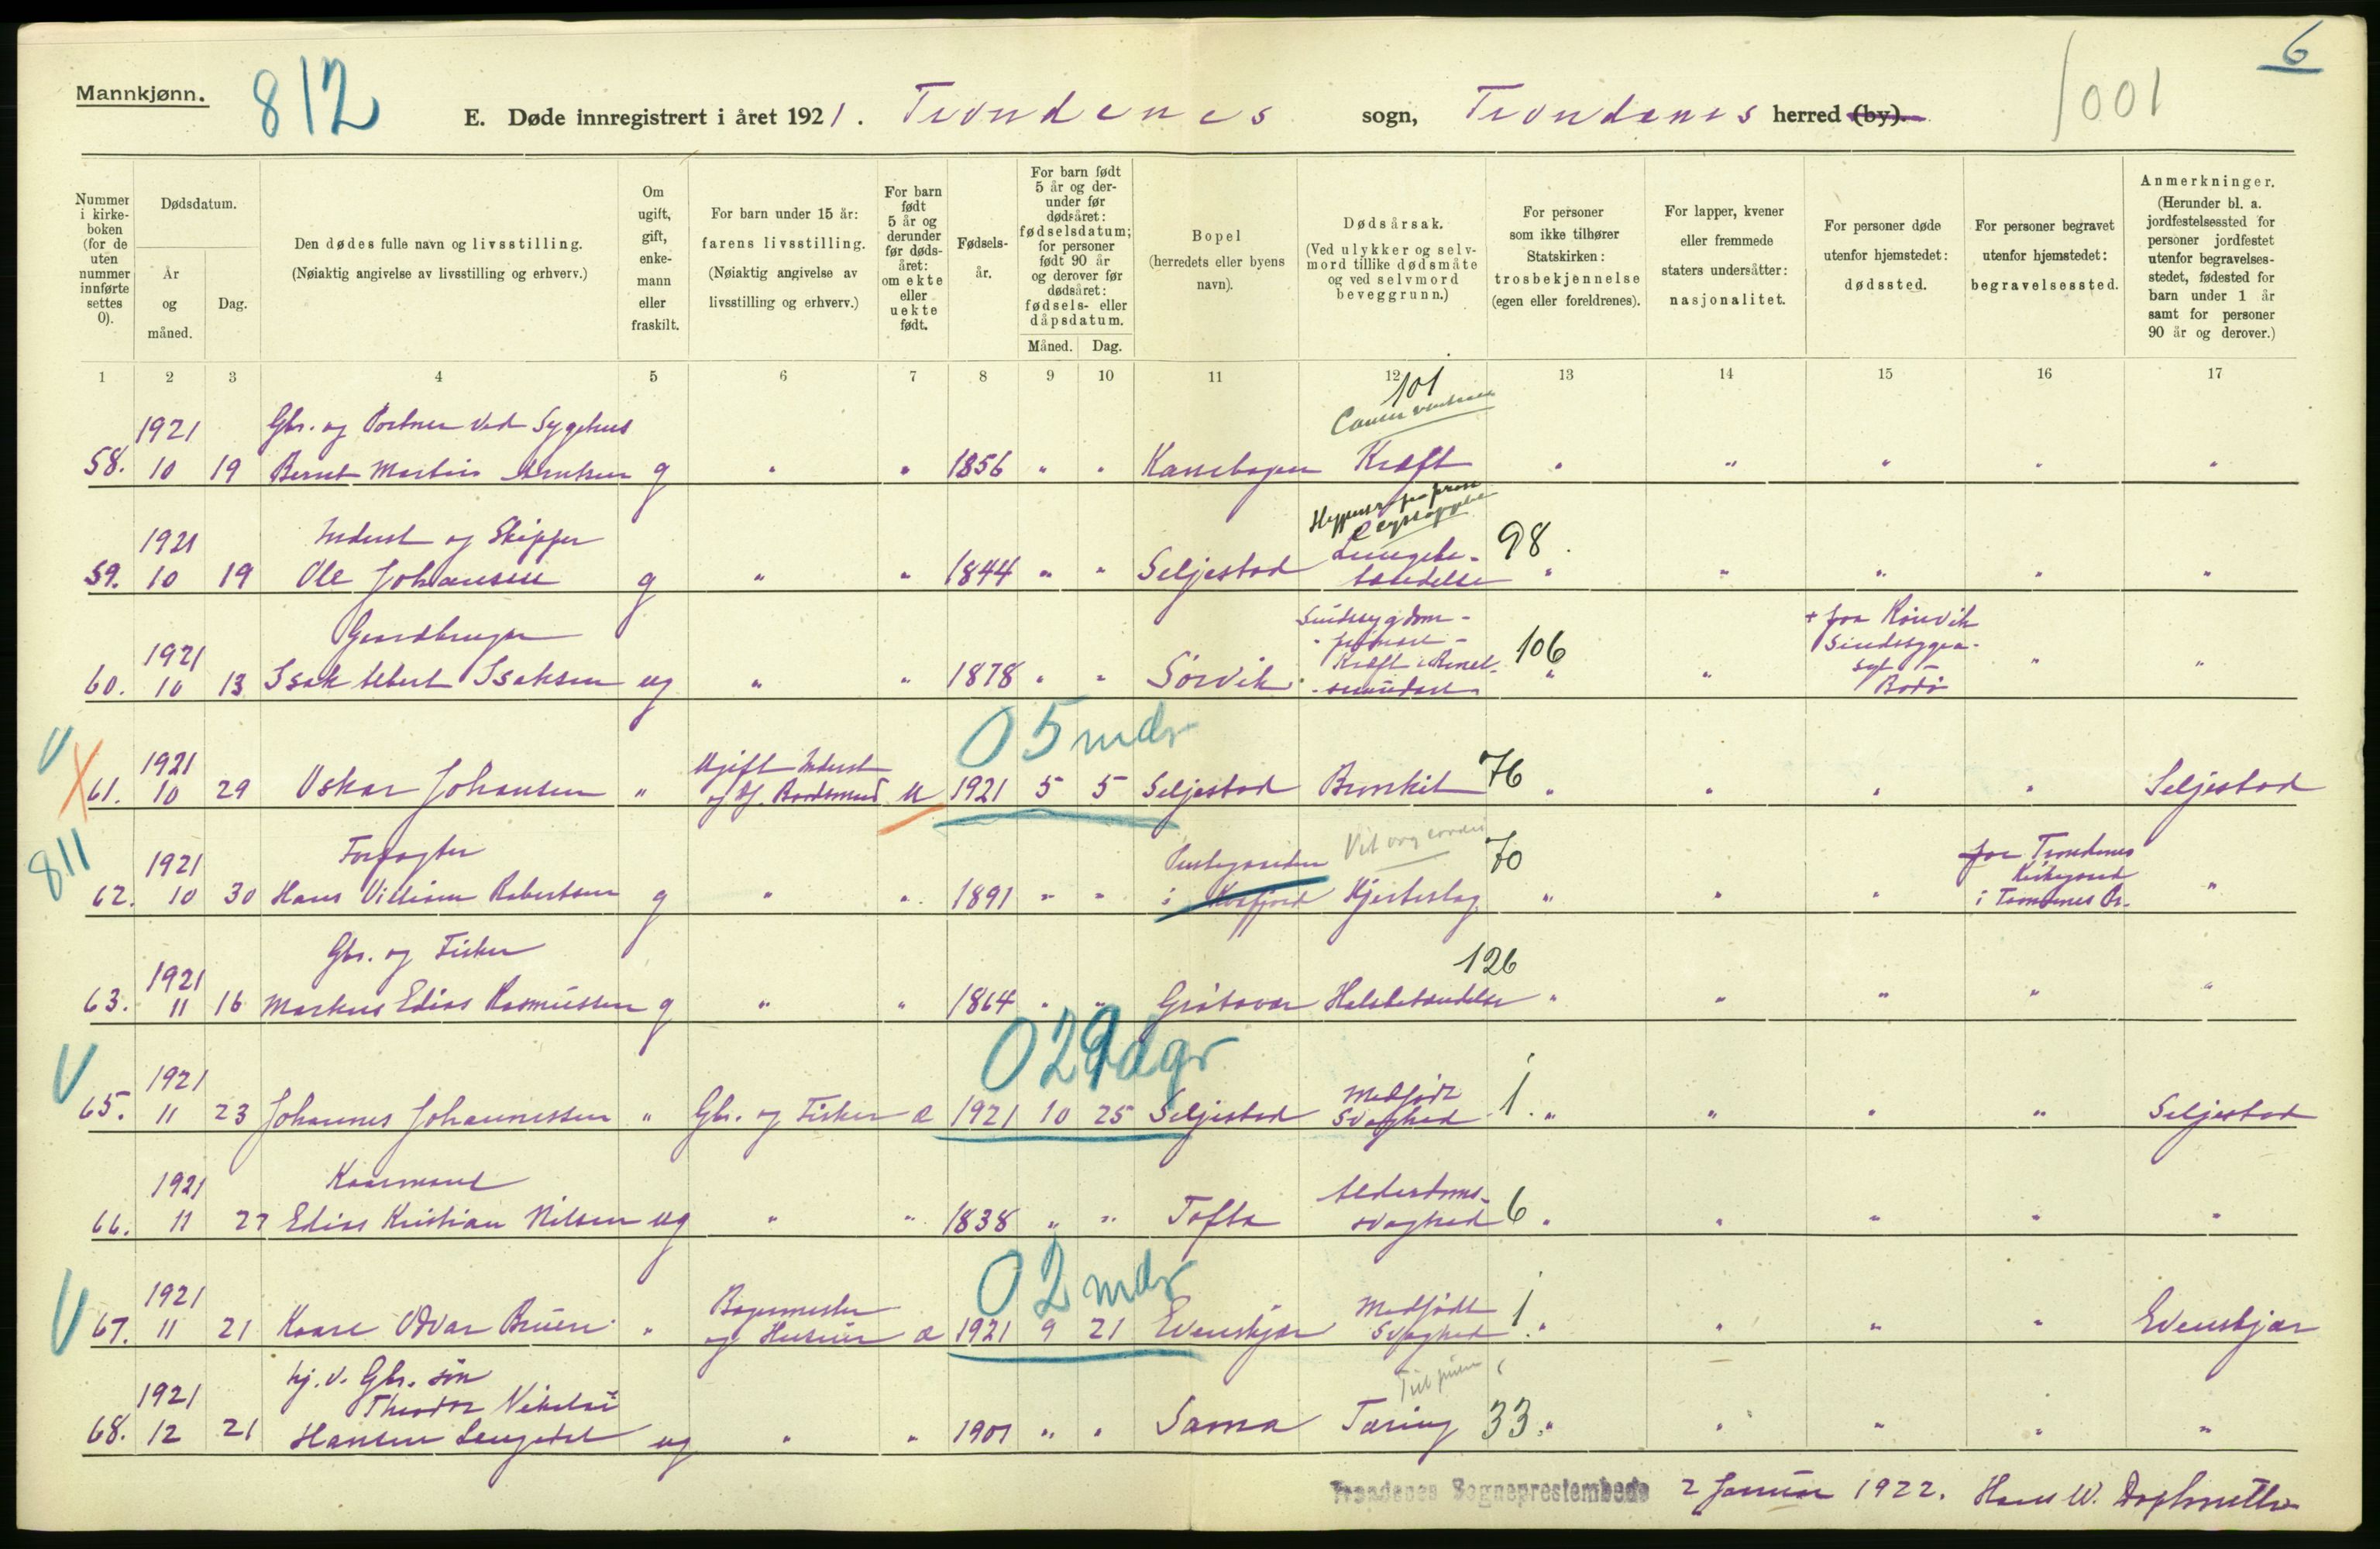 6
Mannkjønn.
812
1001
E. Døde innregistrert i året 1921. Trondenes sogn, Trondenes herred (by).
Nummer i kirke-boken (for de uten nummer innførte settes 0).
Dødsdatum.
År og måned.
Dag.
Den dødes fulle navn og livsstilling.
(Nøiaktig angivelse av livsstilling og erhverv.)
Om ugift, gift, enke-mann eller fraskilt.
For barn under 15 år:
farens livsstilling.
(Nøiaktig angivelse av livsstilling og erhverv.)
For barn født 5 år og derunder før døds-året: om ekte eller uekte født.
Fødsels-år.
For barn født 5 år og der-under før dødsåret: fødselsdatum; for personer født 90 år og derover før dødsåret: fødsels- eller dåpsdatum.
Måned. Dag.
Bopel
(herredets eller byens navn).
Dødsårsak.
(Ved ulykker og selv-mord tillike dødsmåte og ved selvmord beveggrunn.)
For personer som ikke tilhører Statskirken: trosbekjennelse (egen eller foreldrenes).
For lapper, kvener eller fremmede staters undersåtter: nasjonalitet.
For personer døde utenfor hjemstedet: dødssted.
For personer begravet utenfor hjemstedet: begravelsessted.
Anmerkninger.
(Herunder bl. a. jordfestelsessted for personer jordfestet utenfor begravelses-stedet, fødested for barn under 1 år samt for personer 90 år og derover.)
1 2 3 4 5 6 7 8 9 10 11 12 13 14 15 16 17
101
Cancer ventriculi
1921 Gbr. og Portner ved Sygehus
58. 10 19 Bernt Martin Arntsen g " " 1856 " " Kanebogen Kræft " " " " "
1921 Inderst og Skipper 98
59. 10 19 Ole Johansen g " " 1844 " " Seljestad Lungebe-tændelse " " " " "
1921 Gaardbruger Sindssygdom - primært - 106 + paa Rønvik Sindssygea-syl
60. 10 13 Isak Albert Isaksen ug " " 1878 " " Sørvik Kræft - sekundært " " Bodø " "
V 05 mdr
X 1921 Ugift Inderst
61. 10 29 Oskar Johansen " u 1921 5 5 Seljestad Bronkit 76 " " " " Seljestad
811 1921 Forpagter Vit org cordis 70 paa Trondenes Kirkegaard
62. 10 30 Hans Villiam Robertsen g " " 1891 " " i Kvæfjord Hjerteslag " " " i Trondenes Pr. "
1921 Gbr. og Fisker 126
63. 11 16 Markus Edias Rasmussen g " " 1864 " " Grøtavær Halsbetændelse " " " " "
V 029dgr
1921 Medfødt
65. 11 23 Johannes Johannessen " Gbr. og Fisker æ 1921 10 25 Seljestad Svaghed 1 " " " " Seljestad
1921 Kaarmand Alderdoms-
66. 11 27 Edias Kristian Nilsen ug " " 1838 " " Tofta svaghed 6 " " " " "
V 02 mdr
1921 Bagermester Medfødt
67. 11 21 Kaare Odvar Bruun " og Huseier æ 1921 9 21 Evenskjær Svaghed 1 " " " " Evenskjær
hj. v. Gbr. søn
1921 Theodor Nikolai
68. 12 21 Hansen Langedal ug " " 1901 " " Sama Tæring 33 " " " " "
Trondenes Sogneprestembede 2 Januar 1922. Hans W.